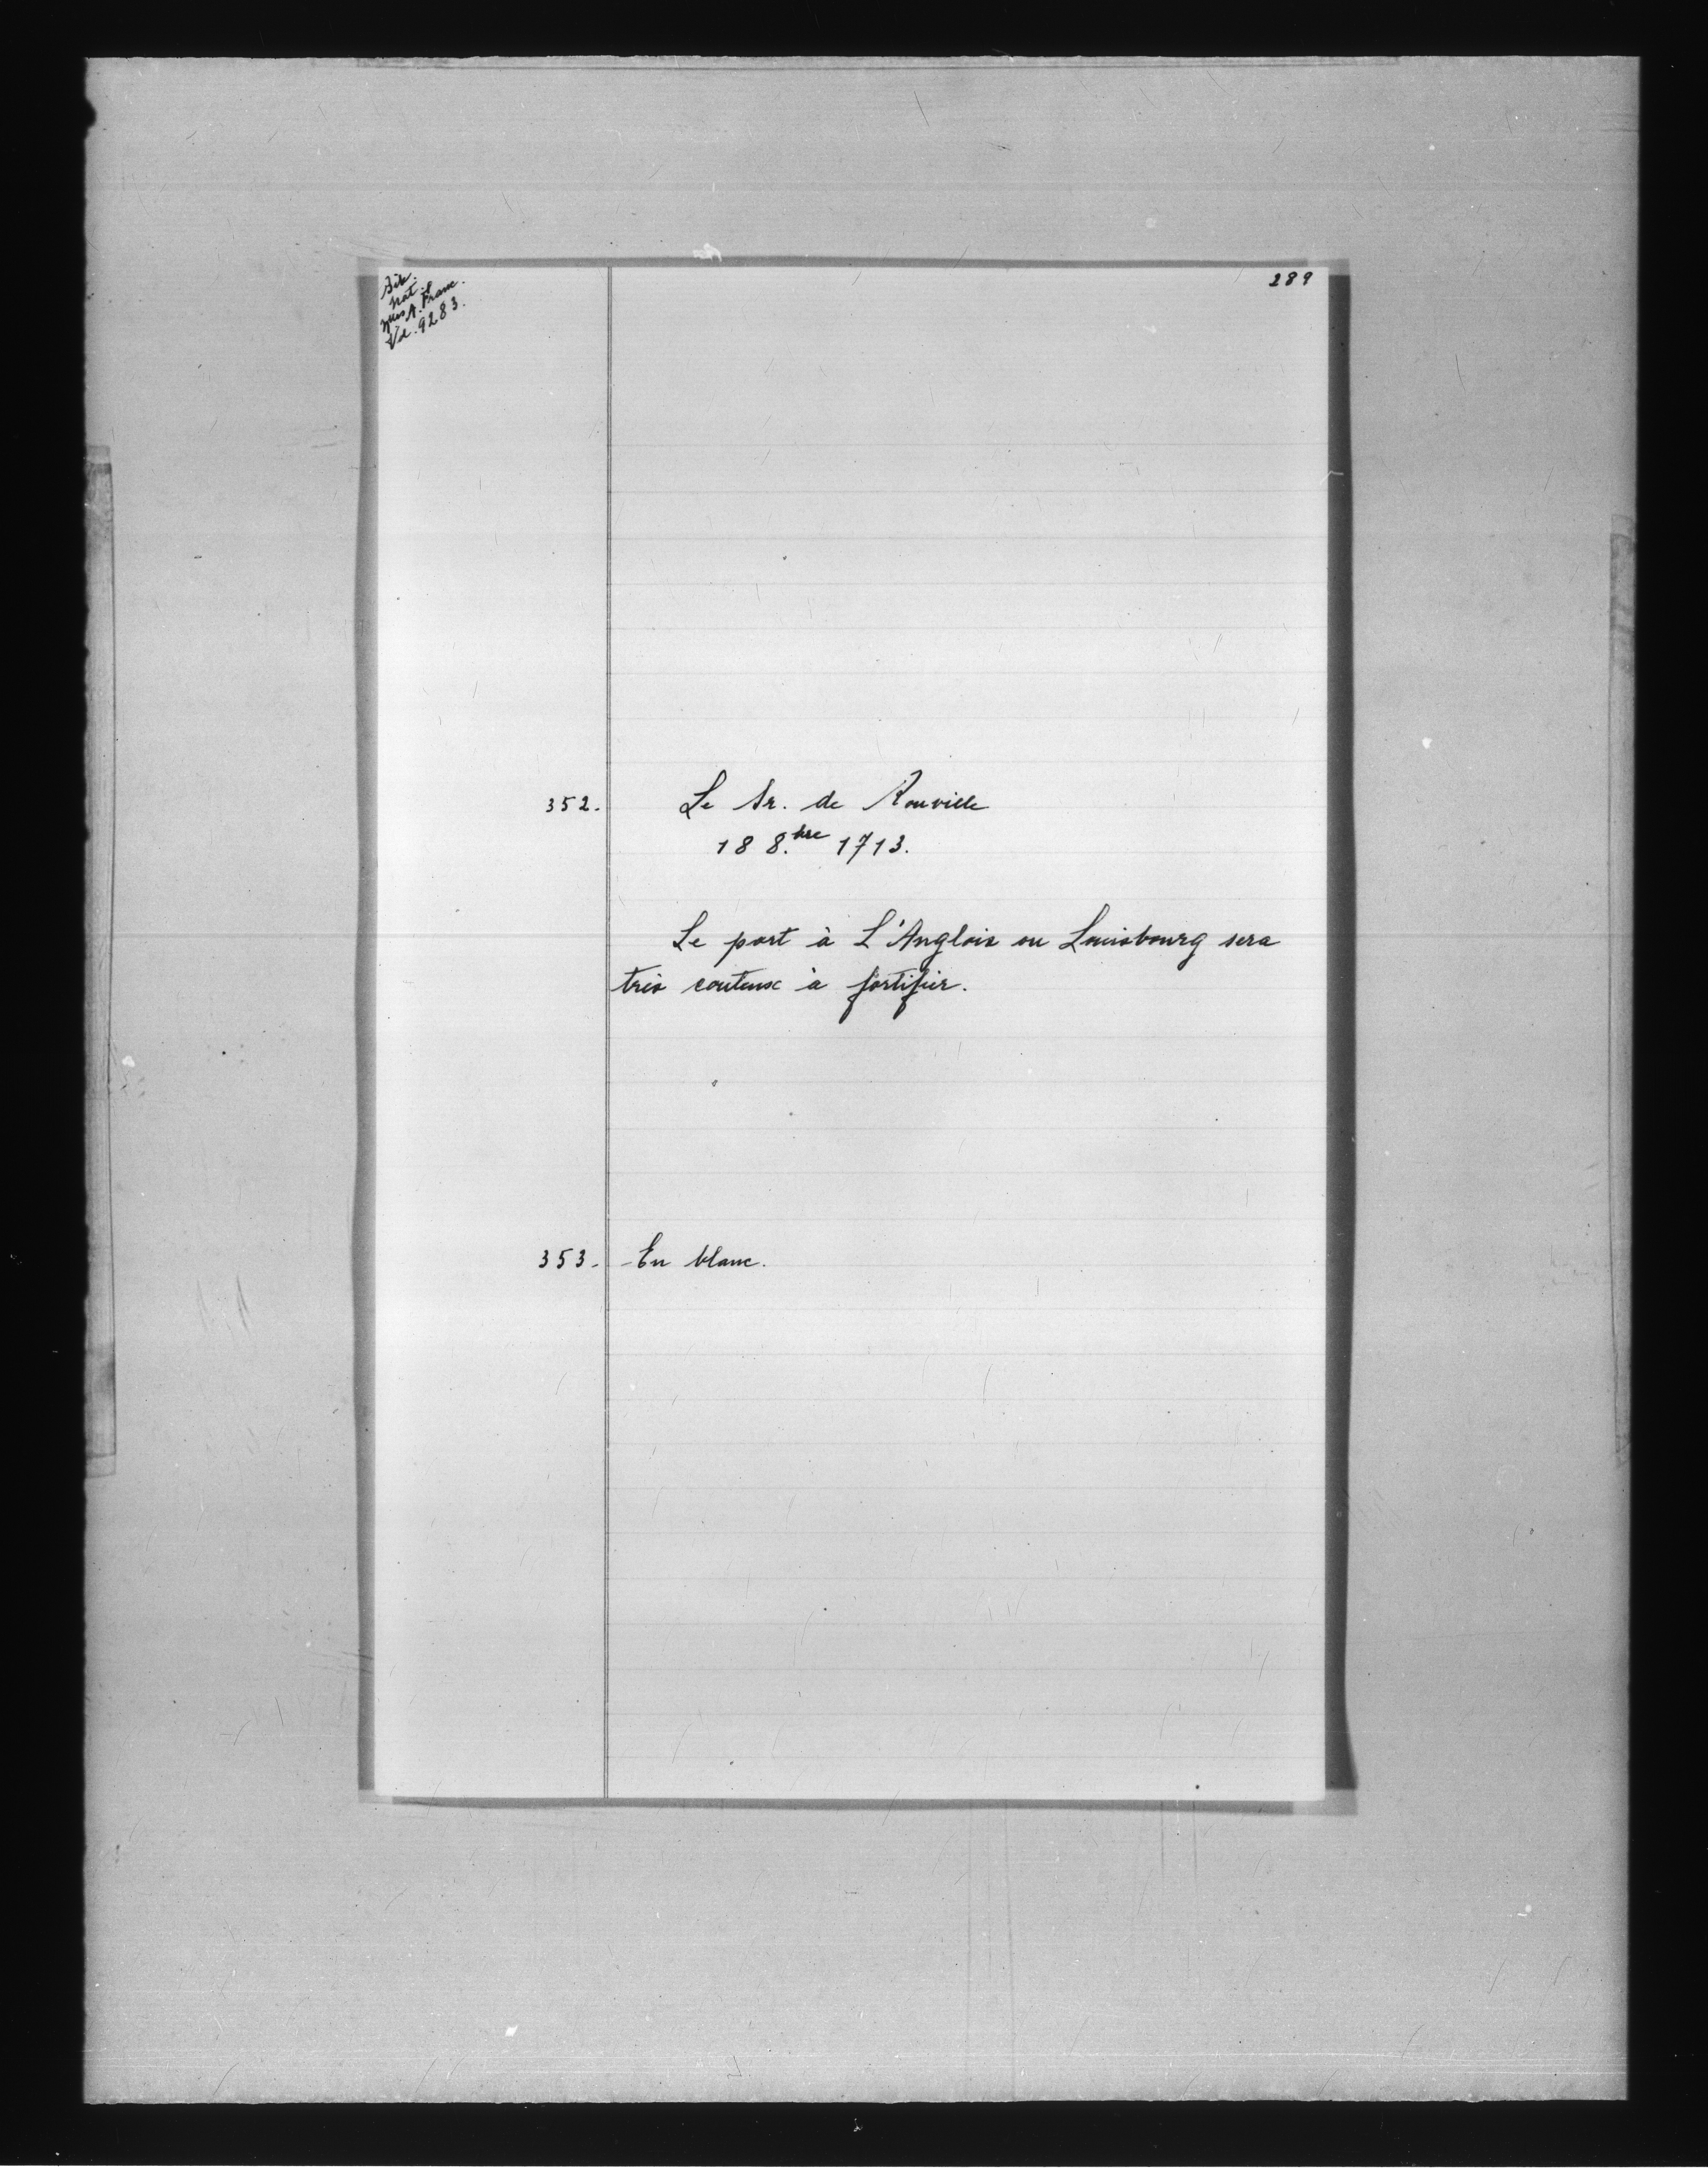 289
Bib.
nat.
nlles A. Franc.
Vol. 9283.
352. Le Sr. de Rouville
18 8.bre 1713.
Le port à L'Anglois ou Louisbourg sera
très couteux à fortifier.
353. - En blanc.